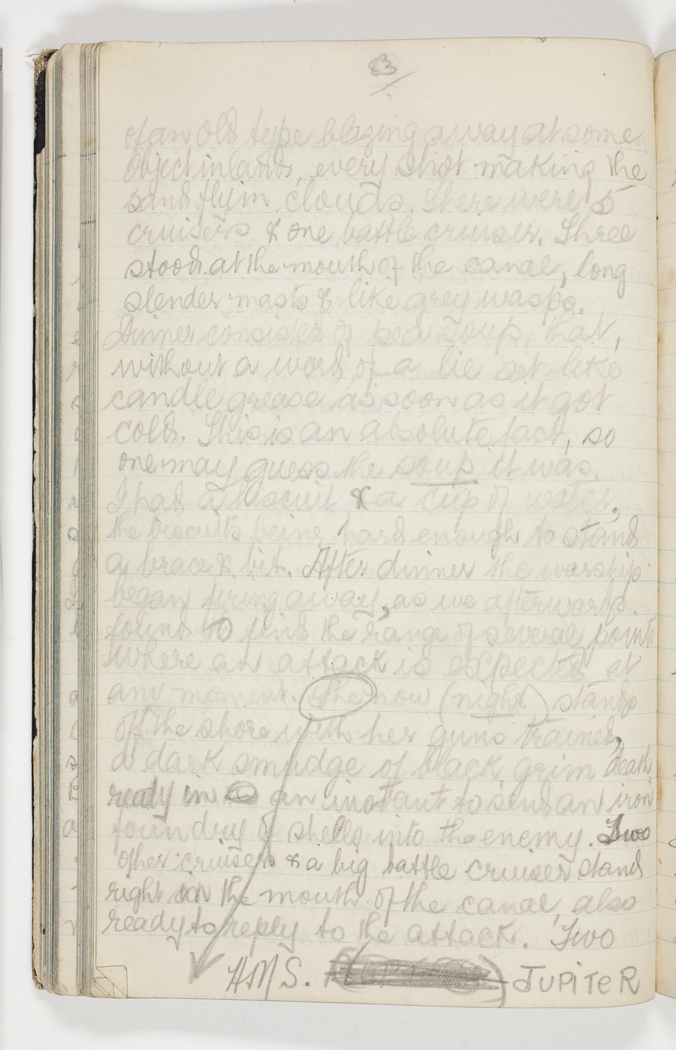 83
of an old type blazing away at some
object inlands, every shot making the
sand fly in clouds. There were 5
cruisers & one battle cruiser. Three
stood at the mouth of the canal, long
slender masts & like grey wasps.
Dinner consisted of pea soup, that,
without a word of a lie set like
candle grease as soon as it got
cold. This is an absolute fact, so
one may guess the soup it was.
I had a biscuit & a cup of water,
the biscuits being hard enough to stand
a brace & bit. After dinner the warship
began firing away, as we afterwards
found to find the range of several points
where an attack is expected at
any moment. She now (night) stands
off the shore with her guns trained,
a dark smudge of black grim death
ready in an instant to send an iron
foundry of shells into the enemy. Two
other cruisers & a big battle cruiser stand
right in the mouth of the canal also
ready to reply to the attack. Two
H.M.S. JUPITER